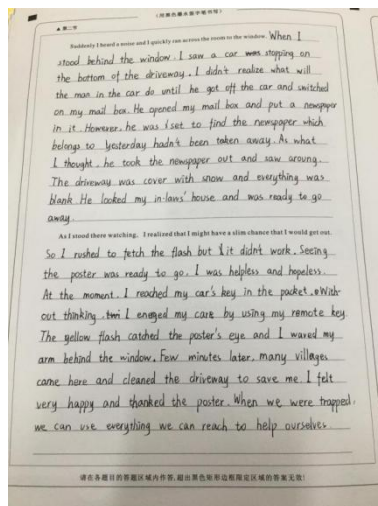 (用黑色墨水签字笔书写)
▲第二节
Suddenly I heard a noise and I quickly ran across the room to the window. When I
stood behind the window. I saw a car was stopping on
the bottom of the driveway. I didn't realize what will
the man in the car do until he got off the car and switched
on my mail box. He opened my mail box and put a newspaper
in it. However, he was set to find the newspaper which
belongs to yesterday hadn't been taken away. As what
I thought, he took the newspaper out and saw aroung.
The driveway was cover with snow and everything was
blank. He looked my in-laws' house and was ready to go
away.
As I stood there watching, I realized that I might have a slim chance that I would get out.
So I rushed to fetch the flash but it didn't work. Seeing
the poster was ready to go, I was helpless and hopeless.
At the moment, I reached my car's key in the pocket. With-
out thinking, I my care by using my remote key.
The yellow flash catched the poster's eye and I waved my
arm behind the window. Few minutes later, many villages
came here and cleaned the driveway to save me. I felt
very happy and thanked the poster. When we were trapped,
we can use everything we can reach to help ourselves.
请在各题目的答题区域内作答,超出黑色矩形边框限定区域的答案无效!